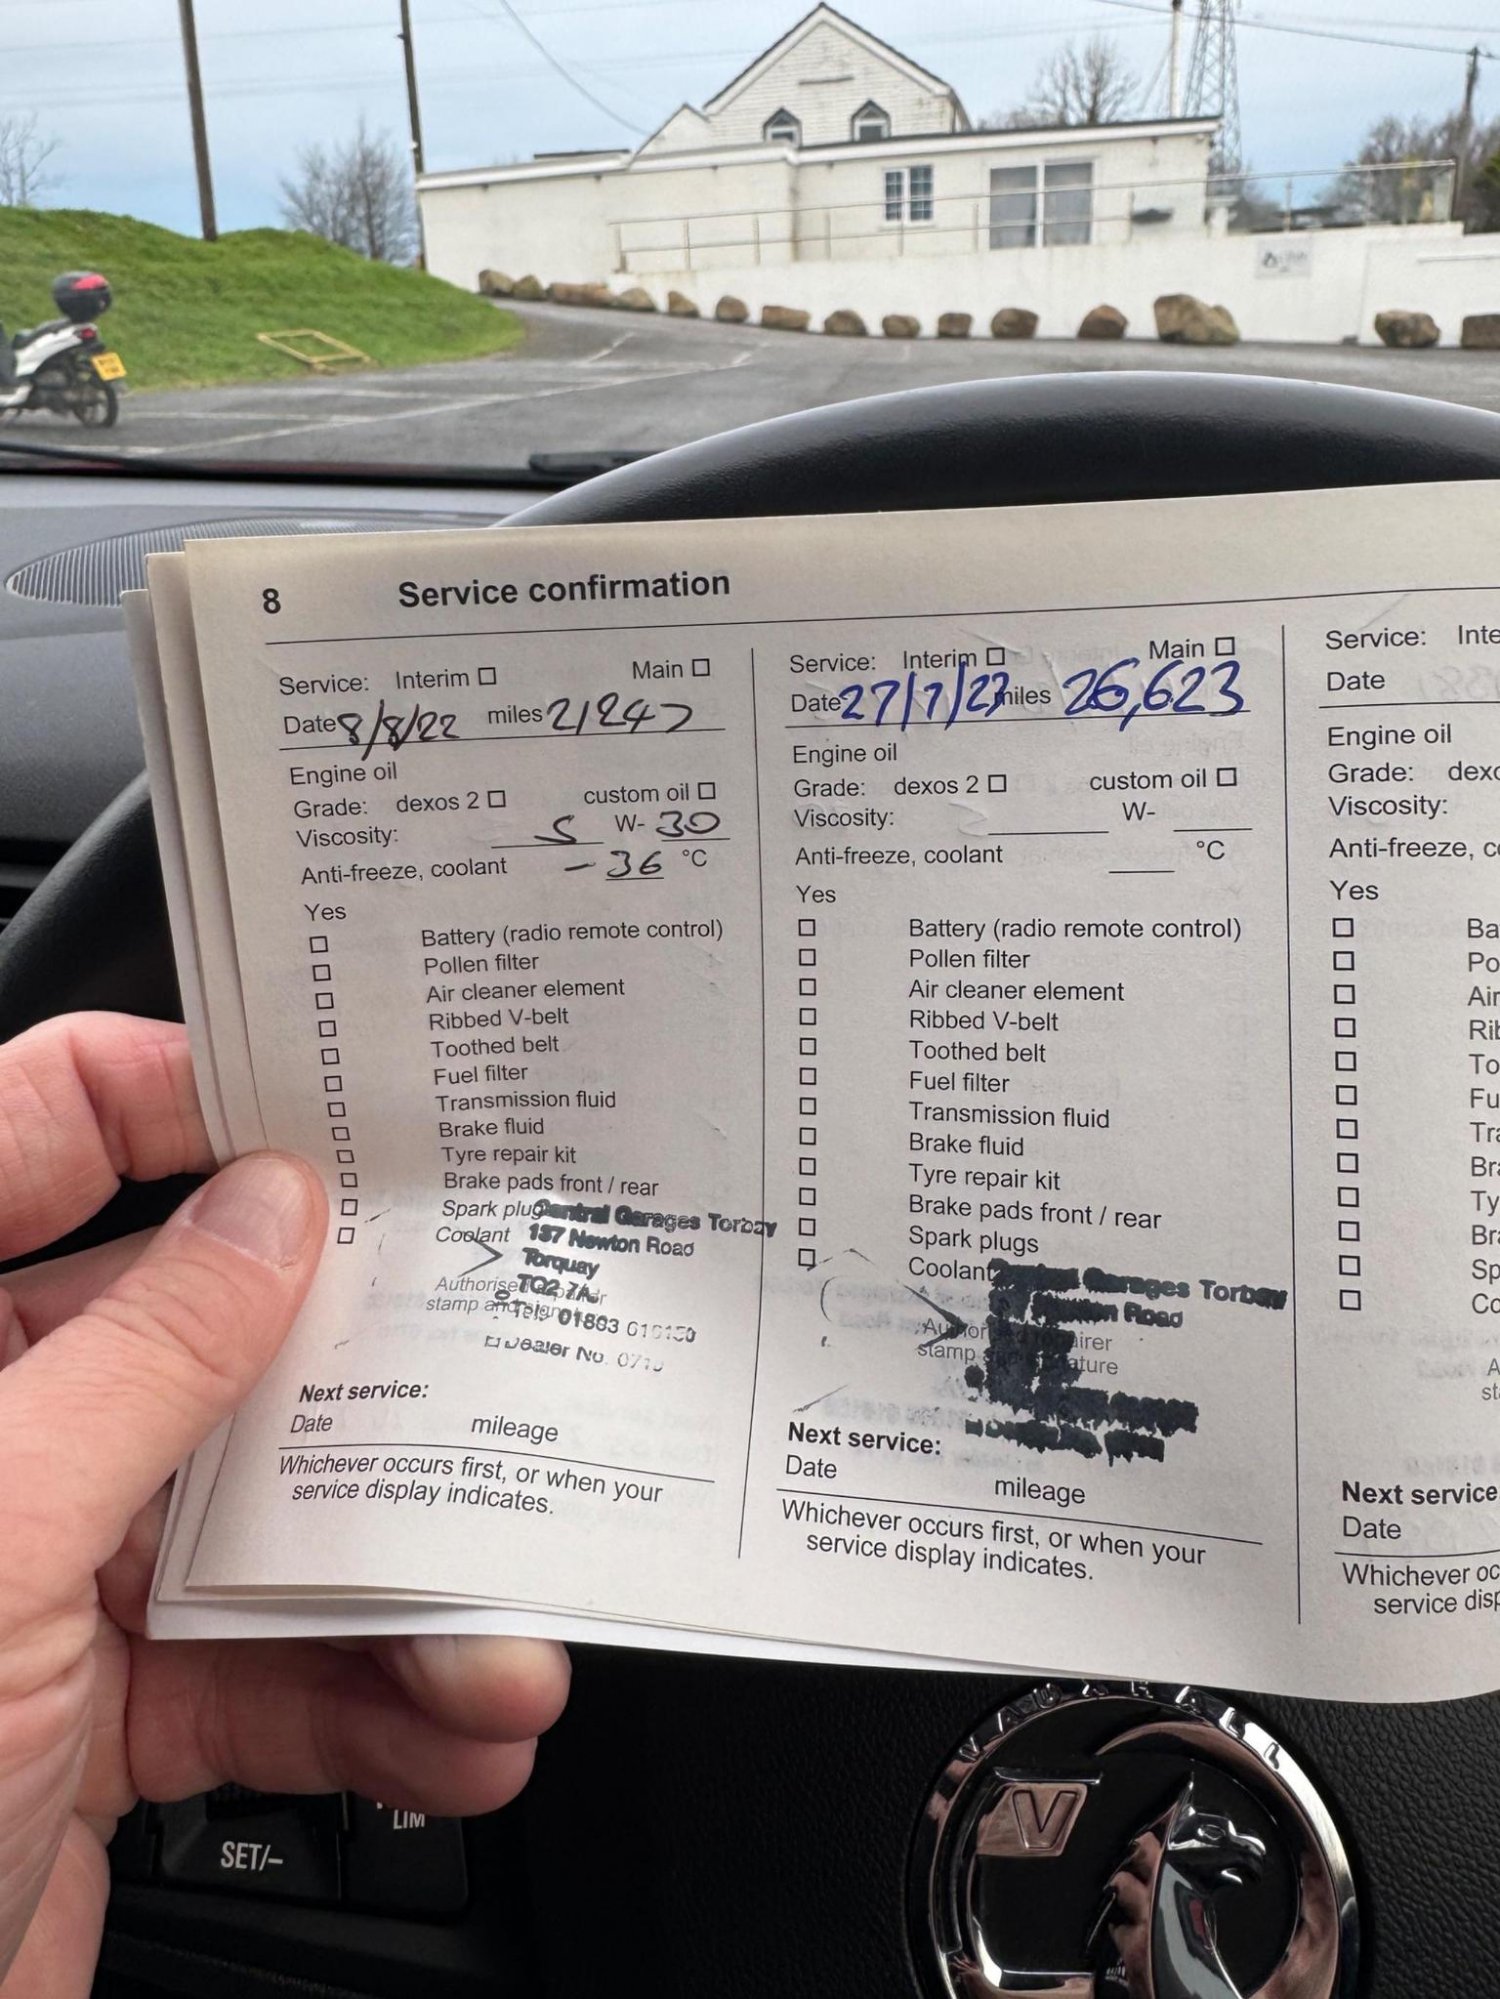 8 Service confirmation
Service: Interim Main
Date 8/8/22 miles 21247
Engine oil
Grade: dexos 2 custom oil
Viscosity: 5 W- 30
Anti-freeze, coolant -36 °C
Yes
Battery (radio remote control)
Pollen filter
Air cleaner element
Ribbed V-belt
Toothed belt
Fuel filter
Transmission fluid
Brake fluid
Tyre repair kit
Brake pads front / rear
Spark plug
Coolant
Central Garages Torbay
137 Newton Road
Torquay
TQ2 7AJ
Authorise
stamp and
Tel: 01803
Dealer No.
Next service:
Date mileage
Whichever occurs first, or when your
service display indicates.
Service: Interim Main
Date 27/7/23 miles 26,623
Engine oil
Grade: dexos 2 custom oil
Viscosity: W-
Anti-freeze, coolant °C
Yes
Battery (radio remote control)
Pollen filter
Air cleaner element
Ribbed V-belt
Toothed belt
Fuel filter
Transmission fluid
Brake fluid
Tyre repair kit
Brake pads front / rear
Spark plugs
Coolant
Garages Torbay
Road
stamp
Next service:
Date mileage
Whichever occurs first, or when your
service display indicates.
Service: Inte
Date
Engine oil
Grade: dexo
Viscosity:
Anti-freeze, co
Yes
Ba
Po
Air
Rib
To
Fu
Tra
Bra
Ty
Bra
Sp
Co
A
st
Next service
Date
Whichever oc
service disp
VAUXHALL
V
LIM
SET/-